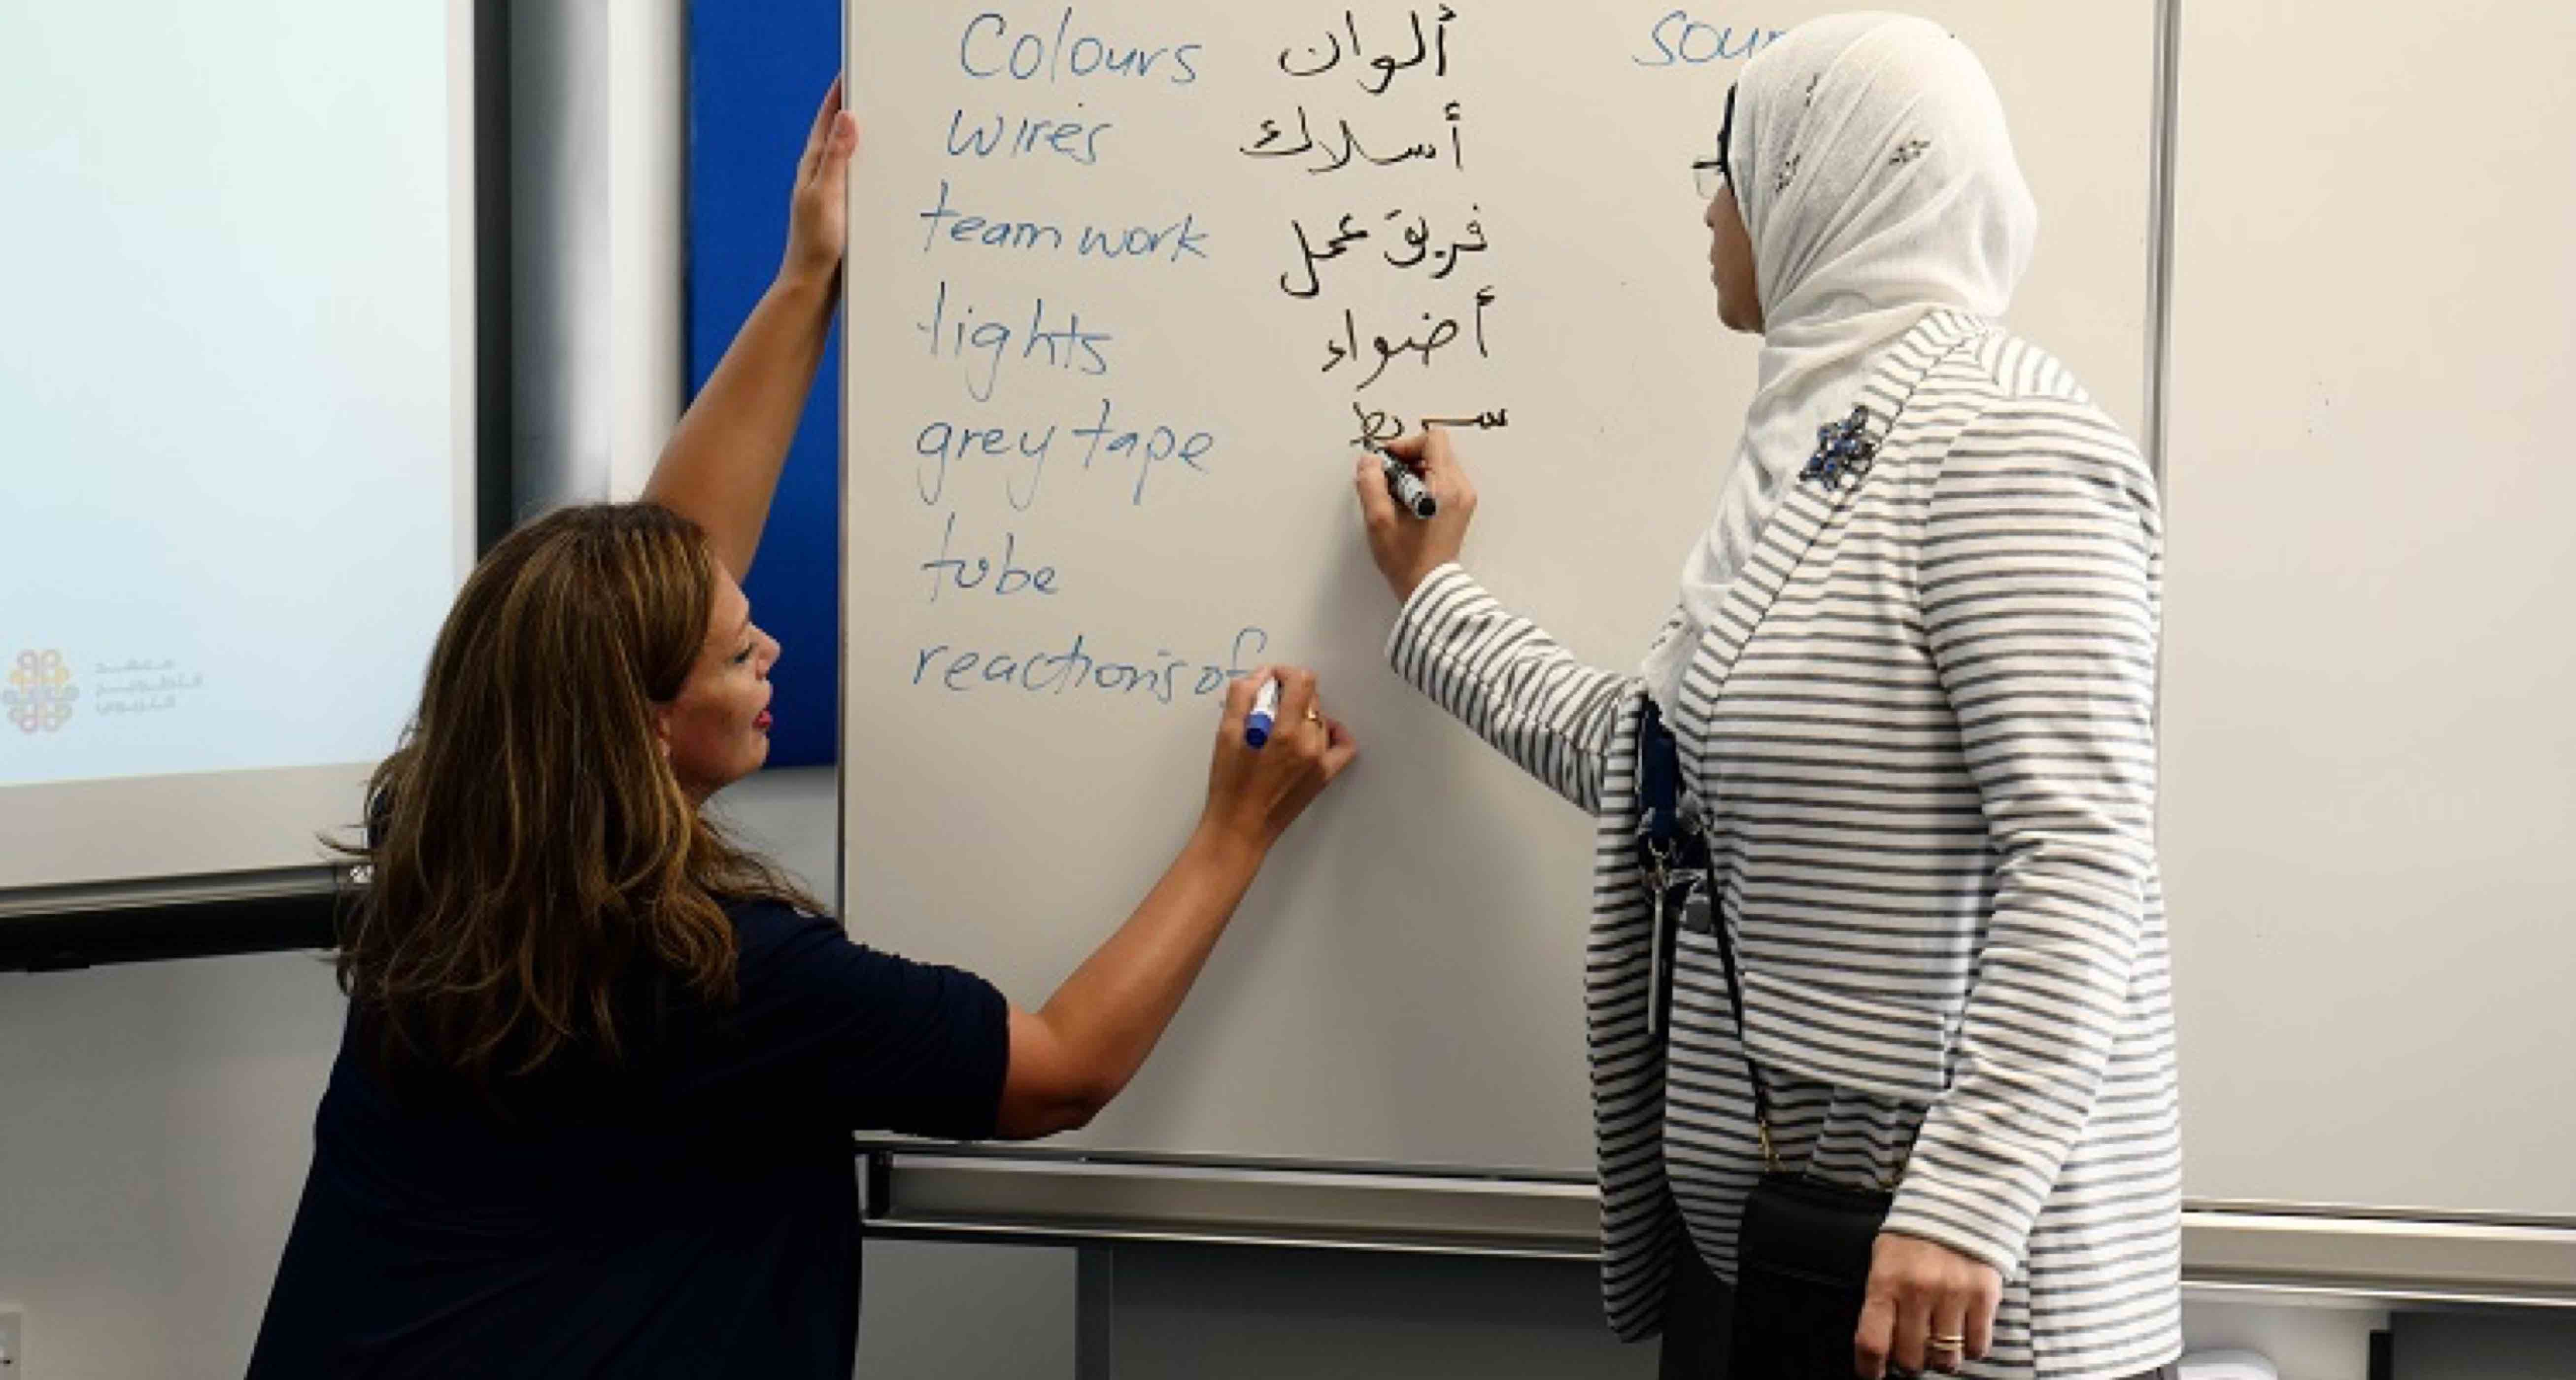 Colours ألوان
wires أسلاك
team work فريق عمل
lights أضواء
grey tape
tube
reactions of
معهد
التطوير
التربوي